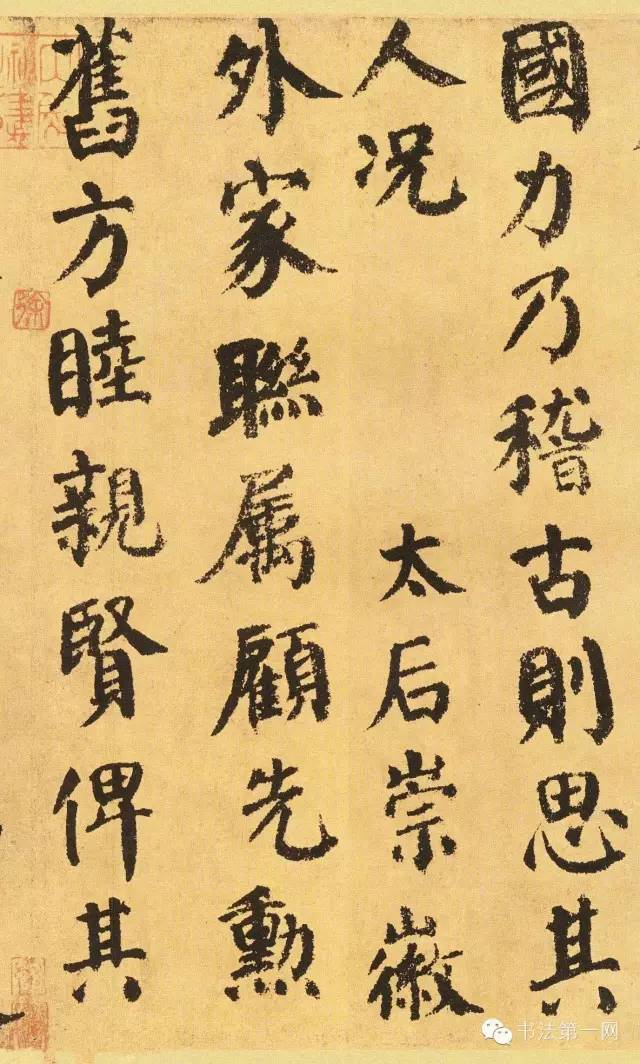 國力乃稽古則思其
人況 太后崇徽
外家聯属顧先勳
舊方睦親賢俾其
书法第一网